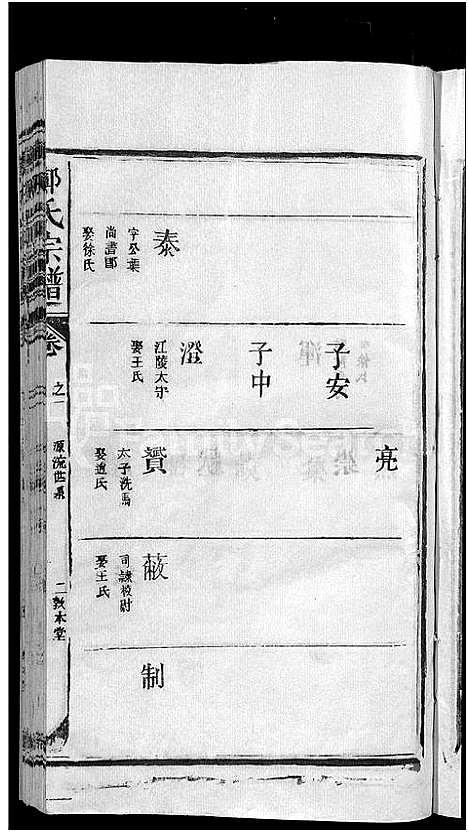 泰
字公葉
尚書郎
娶徐氏
子安
子中
澄
江陵太守
娶王氏
亮
賓
太子洗馬
娶趙氏
蔽
司隸校尉
娶王氏
制
氏宗譜
卷
之一
源流世系
二敦本堂